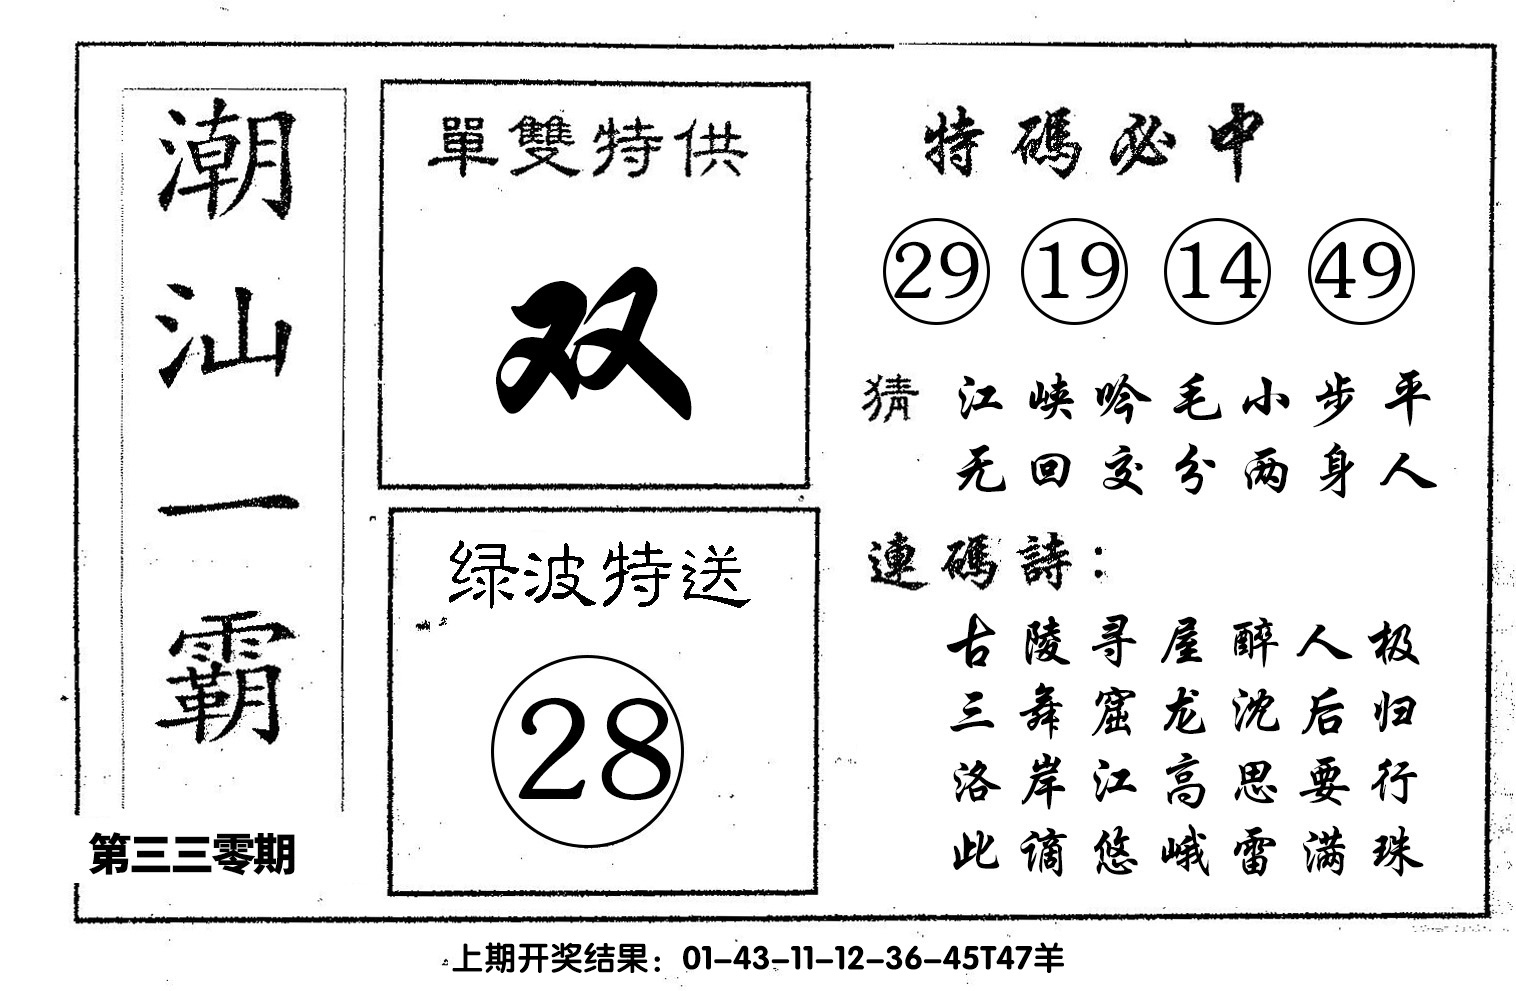 潮汕一霸
第三三零期
單雙特供
双
绿波特送
28
特碼必中
29 19 14 49
猜 江峡吟毛小步平
无回交分两身人
連碼詩：
古陵寻屋醉人极
三舞窟龙沈后归
洛岸江高思要行
此谪悠峨雷满珠
上期开奖结果：01-43-11-12-36-45T47羊